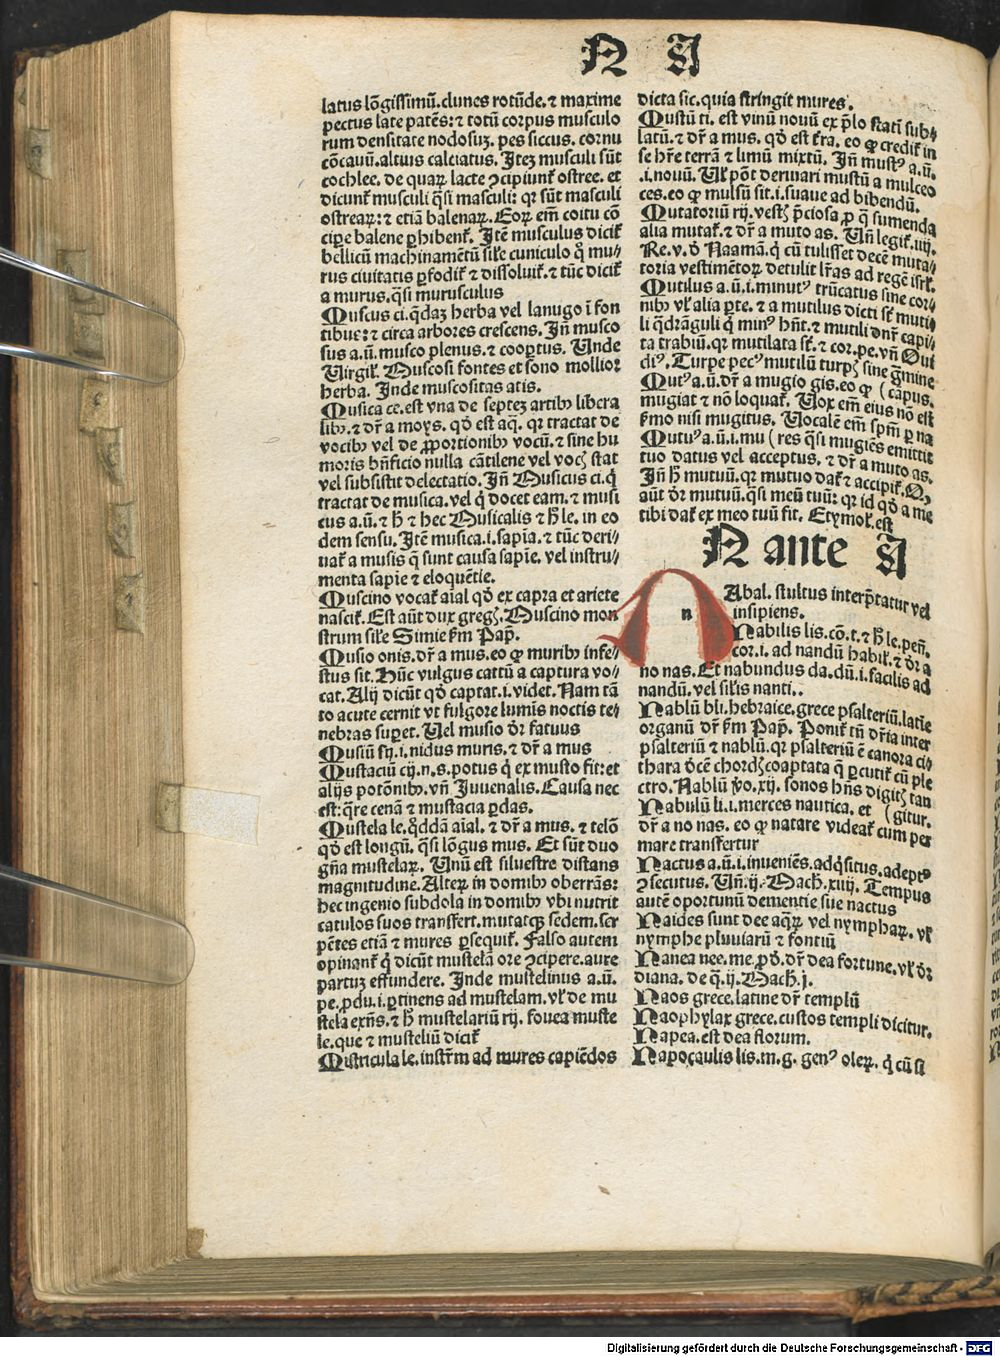 N A
latus lōgissimū. clunes rotūde. ⁊ maxime
pectus late patēs: ⁊ totū corpus musculo
rum densitate nodosuꝫ. pes siccus. cornu
cōcauū. altius calciatus. Iteꝫ musculi sūt
cochlee. de quaꝝ lacte ꝯcipiunt᷑ ostree. et
dicunt᷑ musculi q̄si masculi: qꝛ sūt masculi
ostreaꝝ: ⁊ etiā balenaꝝ. Eoꝝ em̄ coitu cō
cipe balene ꝑhibent᷑. Itē musculus dicit᷑
bellicū machinamētū sil̓e cuniculo qͦ mu⸗
rus ciuitatis ꝑfodit᷑ ⁊ dissoluit᷑. ⁊ tūc dicit᷑
a murus. q̄si murusculus
Muscus ci. q̄daꝫ herba vel lanugo ī fon
tibus: ⁊ circa arbores crescens. Jn̄ musco
sus a. ū. musco plenus. ⁊ coopertus. Unde
Uirgil᷑. Muscosi fontes et sono mollior
herba. Inde muscositas atis.
Musica ce. est vna de septeꝫ artibꝰ libera
libꝰ. ⁊ dr̄ a moys. qd̓ est aq̄. qꝛ tractat de
vocibꝰ vel de ꝓportionibꝰ vocū. ⁊ sine hu
moris bn̄ficio nulla cātilene vel vocꝭ stat
vel subsistit delectatio. Jn̄ Musicus ci. q̓
tractat de musica. vel q̓ docet eam. ⁊ musi
cus a. ū. ⁊ h̓ ⁊ hec Musicalis ⁊ h̓ le. in eo
dem sensu. Itē musica. i. sapīa. ⁊ tūc deri⸗
uat᷑ a musis q̄ sunt causa sapīe. vel instru⸗
menta sapīe ⁊ eloquētie.
Muscino vocat᷑ aīal qd̓ ex capra et ariete
nascit᷑. Est aūt dux gregꝭ. Muscino mon
strum sil̓e Simie ẜm Pap̄.
Musio onis. dr̄ a mus. eo ꝙ muribꝰ infe⸗
stus sit. Hūc vulgus cattū a captura vo⸗
cat. Alij dicūt qd̓ captat. i. videt. Nam tā
to acute cernit vt fulgore lumīs noctis te⸗
nebras suꝑet. Uel musio dr̄ fatuus
Musiū sij. i. nidus muris. ⁊ dr̄ a mus
Mustaciū cij. n. s. potus q̓ ex musto fit: et
alijs potōnibꝰ. vn̄ Juuenalis. Causa nec
est: q̄re cenā ⁊ mustacia ꝑdas.
Mustela le. q̓ddā aīal. ⁊ dr̄ a mus. ⁊ telō
qd̓ est longū. q̄si lōgus mus. Et sūt duo
gn̄a mustelaꝝ. Unū est siluestre distans
magnitudine. Alteꝝ in domibꝰ oberrās:
hec ingenio subdola in domibꝰ vbi nutrit
catulos suos transfert. mutatqꝫ sedem. ser
pētes etiā ⁊ mures ꝑsequit᷑. Falso autem
opinant᷑ q̓ dicūt mustelā ore ꝯcipere. aure
partuꝫ effundere. Inde mustelinus a. ū.
pe. ꝓdu. i. ꝑtinens ad mustelam. vl᷑ de mu
stela exn̄s. ⁊ h̓ mustelariū rij. fouea muste
le. que ⁊ musteliū dicit᷑
Mustricula le. instr̄m ad mures capiēdos
dicta sic. quia stringit mures.
Mustū ti. est vinū nouū ex p̄lo statī sub⸗
latū. ⁊ dr̄ a mus. qd̓ est t̄ra. eo ꝙ credit᷑ in
se hr̄e terrā ⁊ limū mixtū. Jn̄ mustꝰ a. ū.
.i. nouū. Ul᷑ pōt deriuari mustū a mulceo
ces. eo ꝙ mulsū sit. i. suaue ad bibendū.
Mutatoriū rij. vestꝭ p̄ciosa ꝓ q̄ sumenda
alia mutat᷑. ⁊ dr̄ a muto as. Un̄ legit᷑. iiij.
Re. v. d̓ Naamā. q̓ cū tulisset decē muta⸗
toria vestimētoꝝ detulit lr̄as ad regē isrl᷑.
Mutilus a. ū. i. minutꝰ trūcatus sine cor⸗
nibꝰ vl᷑ alia ꝑte. ⁊ a mutilus dicti st᷑ muti⸗
li q̄drāguli q̓ minꝰ hn̄t. ⁊ mutili dn̄r capi⸗
ta trabiū. qꝛ mutilata st᷑. ⁊ cor. pe. vn̄ Oui
diꝰ. Turpe pecꝰ mutilū turpꝭ sine ḡmine
Mutꝰ a. ū. dr̄ a mugio gis. eo ꝙ (cāpus.
mugiat ⁊ nō loquat᷑. Uox em̄ eius nō est
ẜmo nisi mugitus. Uocalē em̄ sp̄m ꝑ na
Mutuꝰ a. ū. i. mu (res q̄si mugiēs emittit
tuo datus vel acceptus. ⁊ dr̄ a muto as.
Jn̄ h̓ mutuū. qꝛ mutuo dat᷑ ⁊ accipit᷑.
aūt dr̄ mutuū. q̄si meū tuū: qꝛ id qd̓ a me
tibi dat᷑ ex meo tuū fit. Etymol᷑. est
N ante A
n
Abal. stultus interp̄tatur vel
insipiens.
Nabilis lis. cō. t. ⁊ h̓ le. pen̄.
cor. i. ad nandū habil᷑. ⁊ dr̄ a
no nas. Et nabundus da. dū. i. facilis ad
nandū. vel sil̓is nanti..
Nablū bli. hebraice. grece psalteriū. latīe
organū dr̄ ẜm Pap̄. Ponit᷑ tn̄ dr̄ia inter
psalteriū ⁊ nablū. qꝛ psalteriū ē canora ci⸗
thara decē chordꝭ coaptata q̄ ꝑcutit᷑ cū ple
ctro. Nablū v̓o. xij. sonos hn̄s digitꝭ tan
Nabulū li. i. merces nautica. et (gitur.
dr̄ a no nas. eo ꝙ natare videat᷑ cum per
mare transfertur
Nactus a. ū. i. inueniēs. adq̓situs. adeptꝰ
ꝯsecutus. Un̄. ij. Mach. xiiij. Tempus
autē oportunū dementie sue nactus
Naides sunt dee aq̄ꝝ vel nymphaꝝ. vl᷑
nymphe pluuiarū ⁊ fontiū
Nanea nee. me. ꝓd̓. dr̄ dea fortune. vl᷑ dr̄
diana. de q̄. ij. Mach. j.
Naos grece. latine dr̄ templū
Naophylax grece. custos templi dicitur.
Napea. est dea florum.
Napocaulis lis. m. g. genꝰ oleꝝ. q̓ cū si
Digitalisierung gefördert durch die Deutsche Forschungsgemeinschaft - DFG